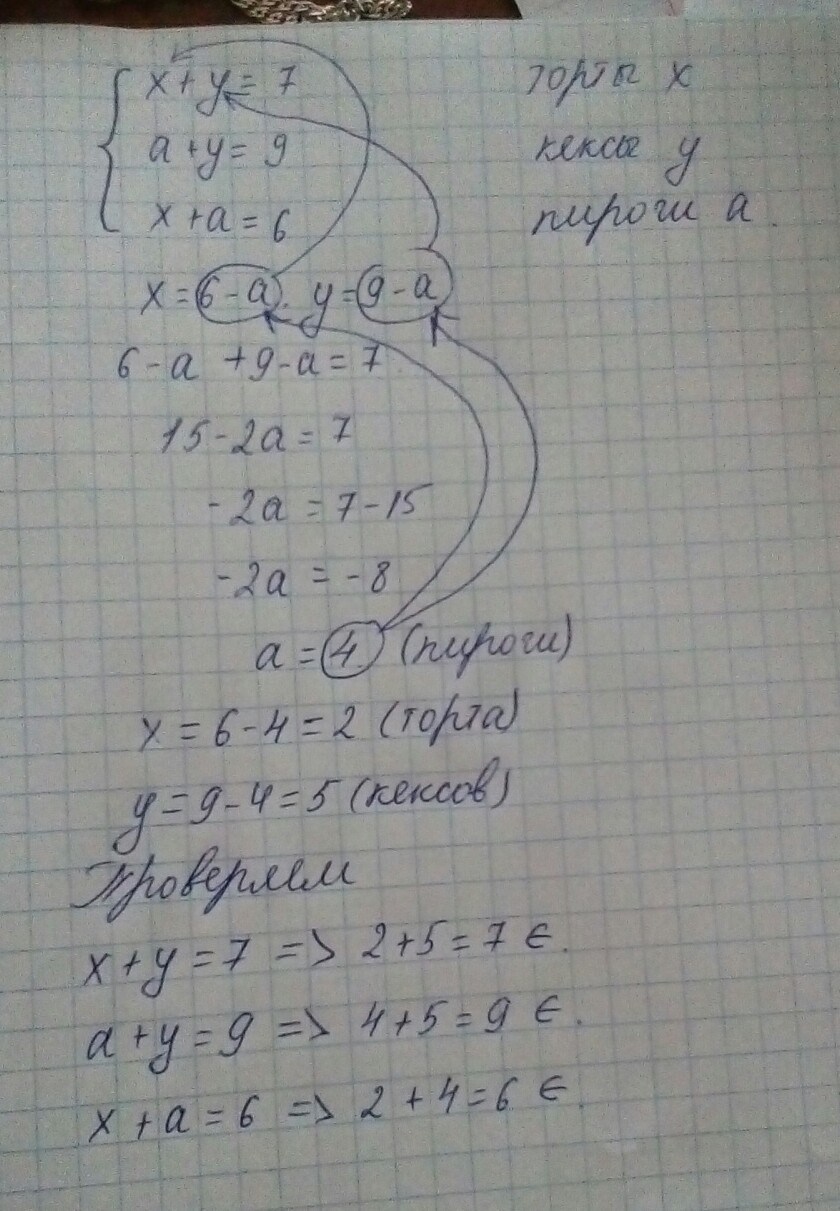 x+y=7 торты x
a+y=9 кексы y
x+a=6 пироги a
x=6-a. y=9-a
6-a+9-a=7
15-2a=7
-2a=7-15
-2a=-8
a=4 (пироги)
x=6-4=2 (торта)
y=9-4=5 (кексов)
Проверяем
x+y=7 => 2+5=7 ∈.
a+y=9 => 4+5=9 ∈.
x+a=6 => 2+4=6 ∈.